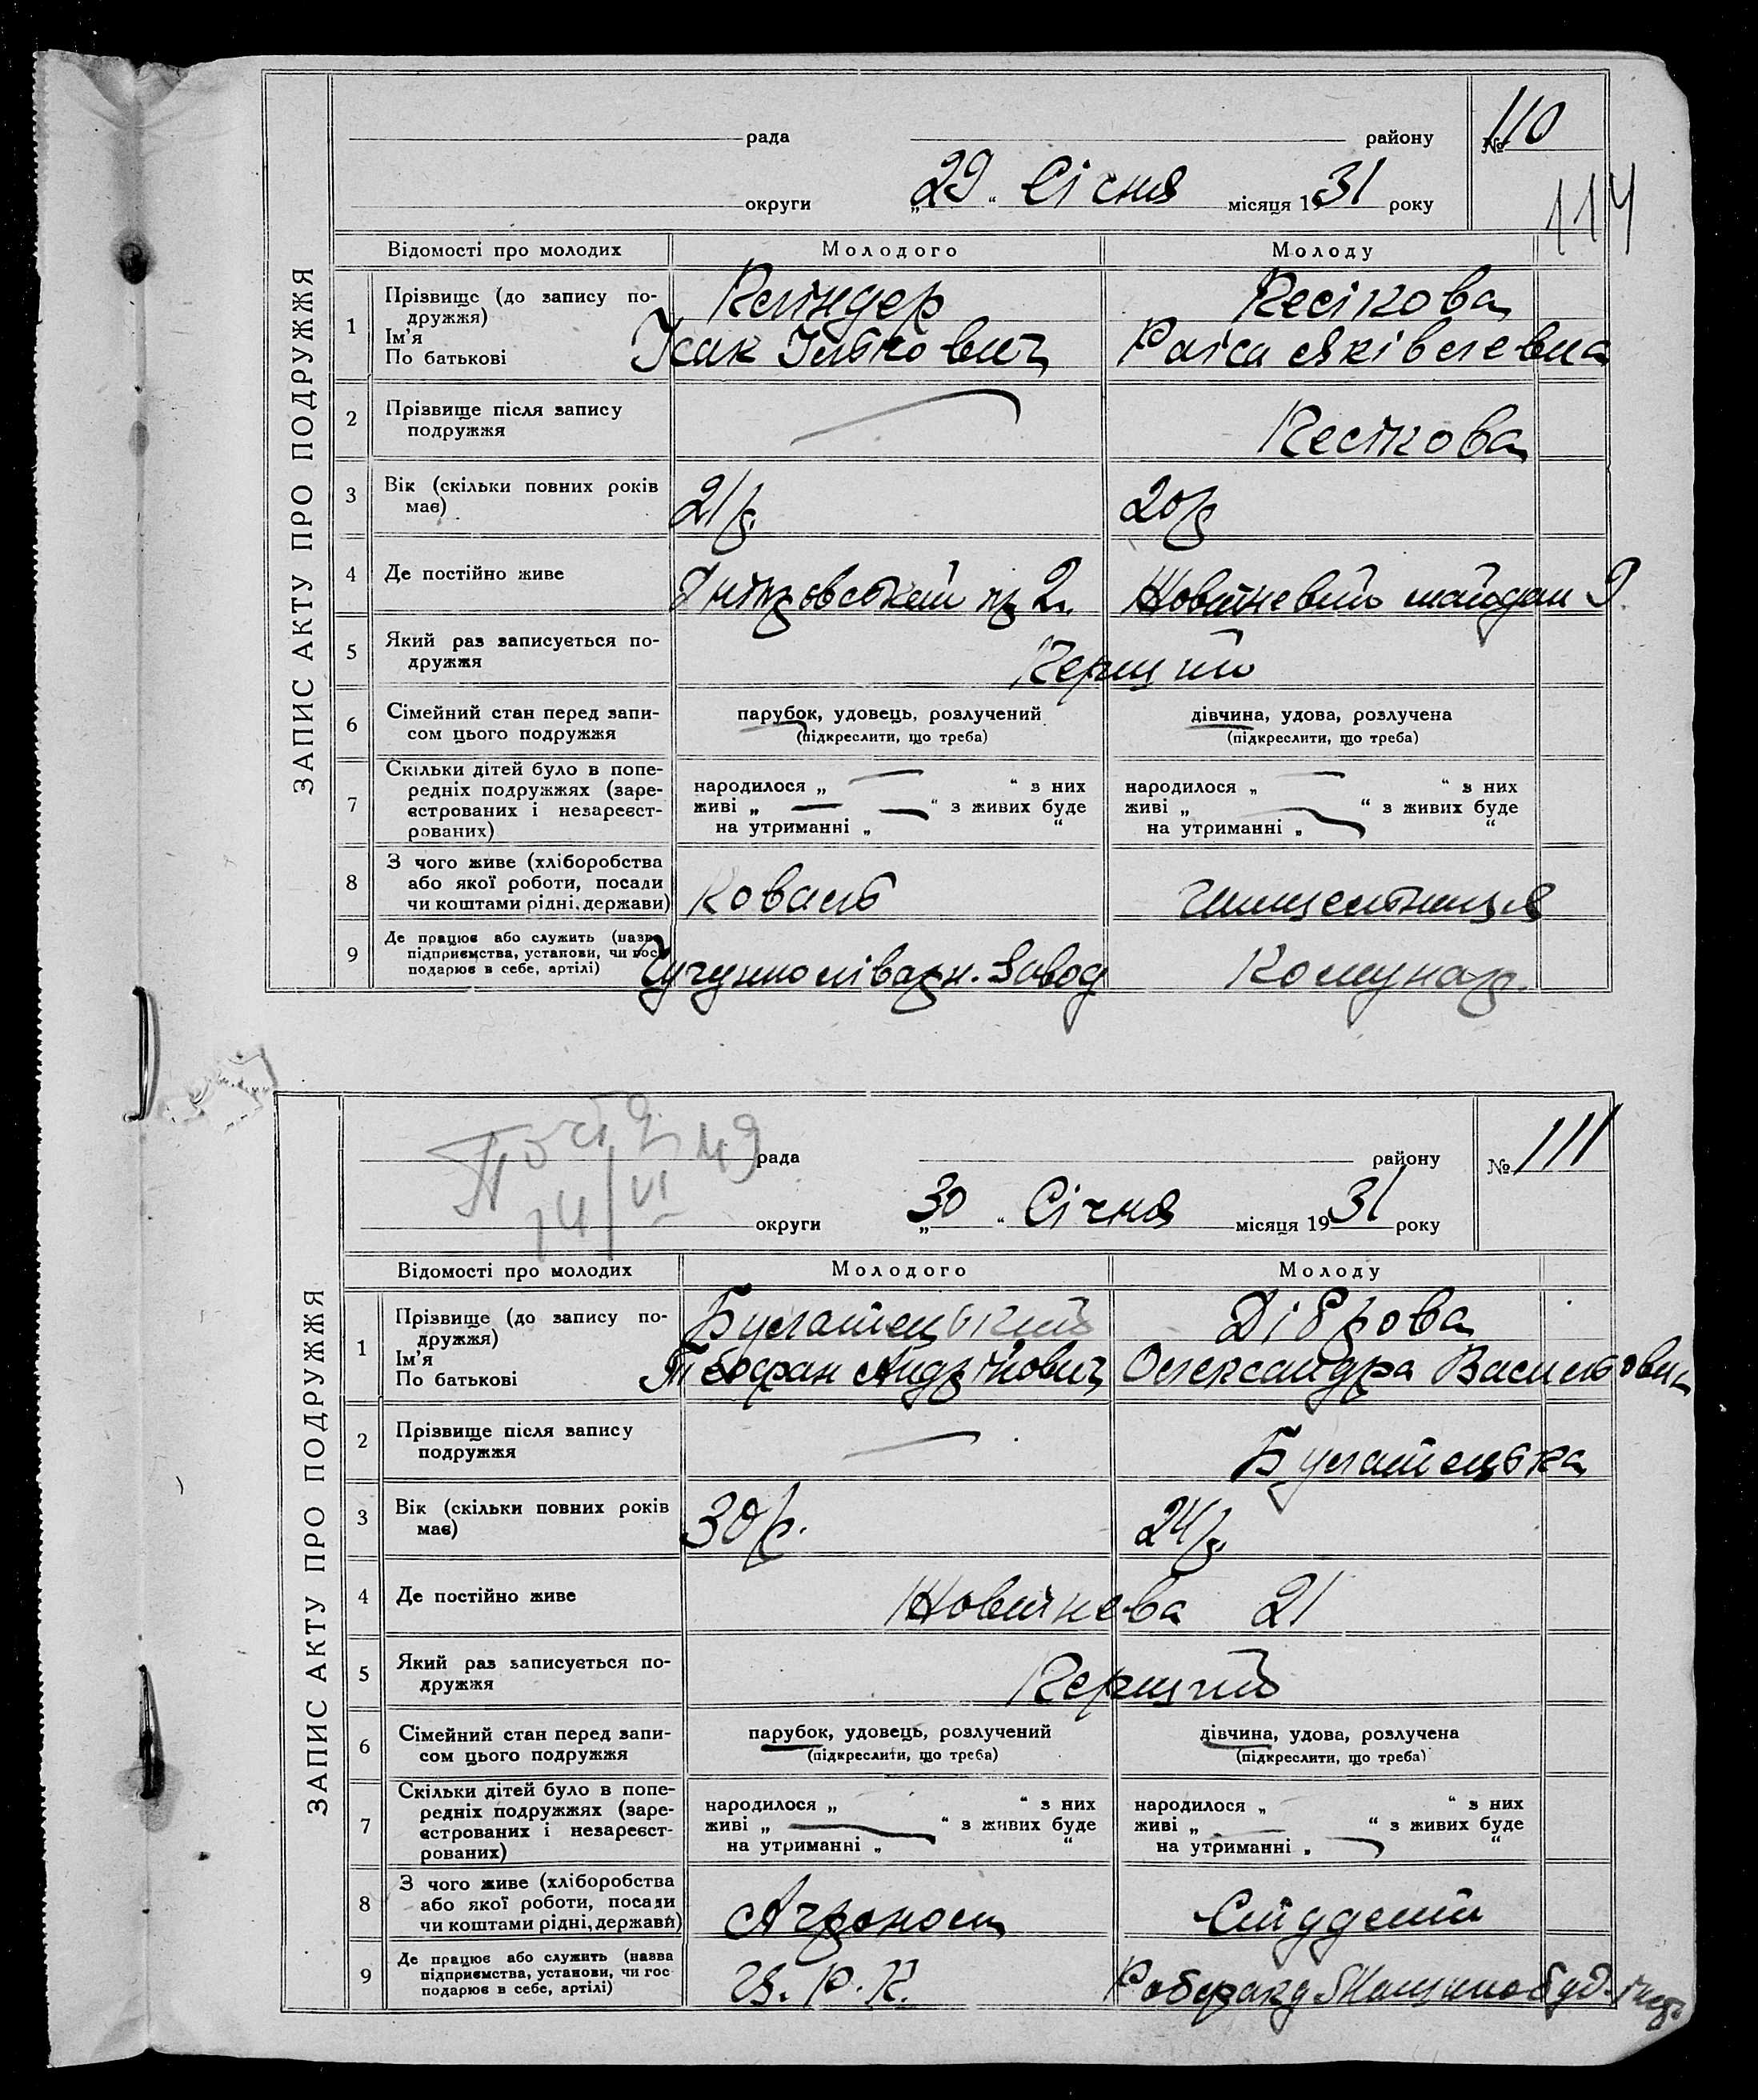 ЗАПИС АКТУ ПРО ПОДРУЖЖЯ
рада району № 110
114
округи „29“ Січня місяця 1931 року
Відомості про молодих Молодого Молоду
1 Прізвище (до запису по-
дружжя)
Ім'я
По батькові
Ісак Раіса Яківлевна
2 Прізвище після запису
подружжя
3 Вік (скільки повних років
має)
21 р. 20 р
4 Де постійно живе
5 Який раз записується по-
дружжя
Перший
6 Сімейний стан перед запи-
сом цього подружжя
парубок, удовець, розлучений
(підкреслити, що треба)
дівчина, удова, розлучена
(підкреслити, що треба)
7 Скільки дітей було в попе-
редніх подружжях (заре-
єстрованих і незареєст-
рованих)
народилося „ “ з них
живі „ “ з живих буде
на утриманні „ “
народилося „ “ з них
живі „ “ з живих буде
на утриманні „ “
8 З чого живе (хліборобства
або якої роботи, посади
чи коштами рідні, держави)
Коваль
9 Де працює або служить (назва
підприємства, установи, чи гос
подарює в себе, артілі)
Чугунноліварн. Завод Комунар.
ЗАПИС АКТУ ПРО ПОДРУЖЖЯ
рада району № 111
14/VI 49
округи „30“ Січня місяця 1931 року
Відомості про молодих Молодого Молоду
1 Прізвище (до запису по-
дружжя)
Ім'я
По батькові
Булатецький Діброва
Теофан Андрійович Олександра Васильовна
2 Прізвище після запису
подружжя
Булатецька
3 Вік (скільки повних років
має)
30 р. 24 р.
4 Де постійно живе
Жовтнева 21
5 Який раз записується по-
дружжя
Перший
6 Сімейний стан перед запи-
сом цього подружжя
парубок, удовець, розлучений
(підкреслити, що треба)
дівчина, удова, розлучена
(підкреслити, що треба)
7 Скільки дітей було в попе-
редніх подружжях (заре-
єстрованих і незареєст-
рованих)
народилося „ “ з них
живі „ “ з живих буде
на утриманні „ “
народилося „ “ з них
живі „ “ з живих буде
на утриманні „ “
8 З чого живе (хліборобства
або якої роботи, посади
чи коштами рідні, держави)
Агроном Студент
9 Де працює або служить (назва
підприємства, установи, чи гос
подарює в себе, артілі)
Робфак